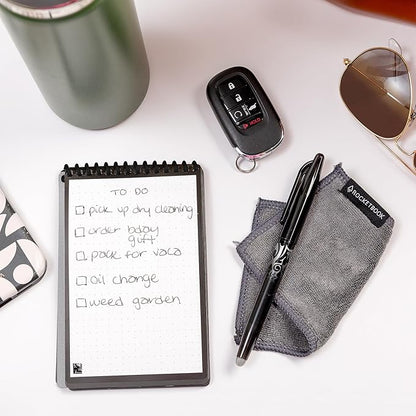 TO DO
pick up dry cleaning
order bday
gift
pack for vaca
oil change
weed garden
HOLD
ROCKETBOOK